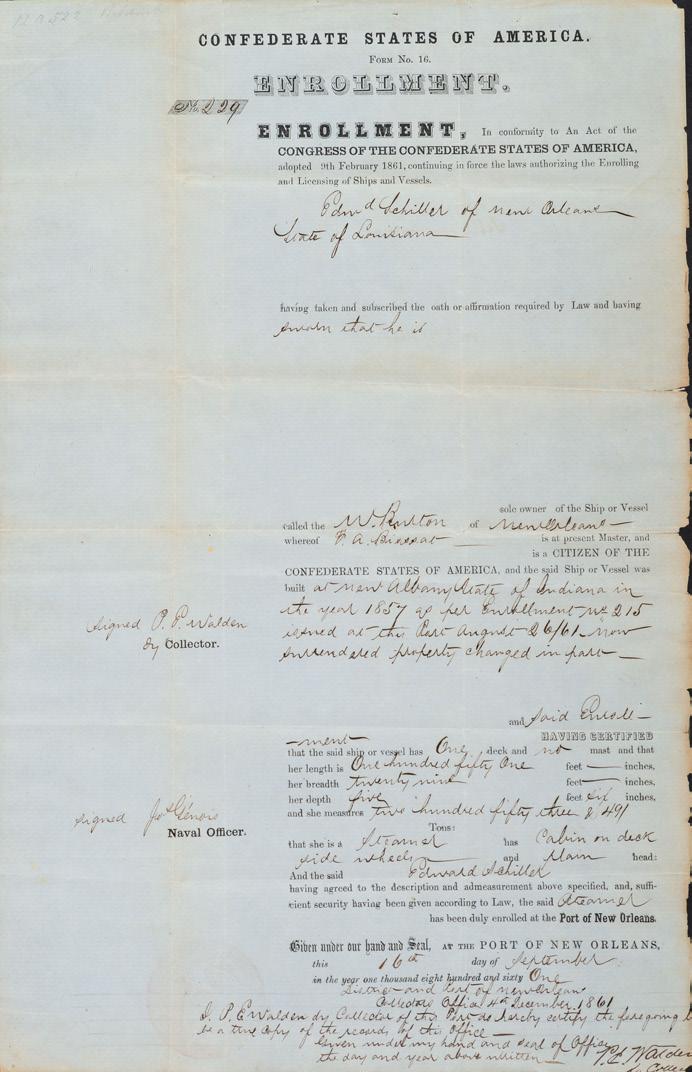 CONFEDERATE STATES OF AMERICA.
FORM No. 16.
ENROLLMENT.
No. 229
ENROLLMENT, In conformity to An Act of the
CONGRESS OF THE CONFEDERATE STATES OF AMERICA,
adopted 9th February 1861, continuing in force the laws authorizing the Enrolling
and Licensing of Ships and Vessels.
Edwd Schiller of New Orleans
State of Louisiana
having taken and subscribed the oath or affirmation required by Law and having
sworn that he is
sole owner of the Ship or Vessel
called the W. Burton of New Orleans
whereof F. A. is at present Master, and
is a CITIZEN OF THE
CONFEDERATE STATES OF AMERICA, and the said Ship or Vessel was
built at New Albany State of Indiana in
the year 1857 as per Enrollment No 215
issued at this Port August 26/61 now
surrendered property changed in part
signed P. E. Walden
Dy Collector.
and said Enroll-
-ment HAVING CERTIFIED
that the said ship or vessel has One deck and no mast and that
her length is One hundred fifty One feet inches,
her breadth twenty nine feet inches,
her depth five feet six inches,
and she measures two hundred fifty three & 49/
Tons:
signed Jos Génois
Naval Officer.
that she is a Steamer has Cabin on deck
side wheels and Plain head:
And the said Edward Schiller
having agreed to the description and admeasurement above specified, and, suffi-
cient security having been given according to Law, the said Steamer
has been duly enrolled at the Port of New Orleans.
Given under our hand and Seal, AT THE PORT OF NEW ORLEANS,
this 16th day of September
in the year one thousand eight hundred and sixty One
District and Port of New Orleans
Collectors Office 4th December 1861
I. P. E. Walden dy Collector of this Port do hereby certify the foregoing t
be a true copy of the records of this Office
Given under my hand and seal of Office
the day and year above written
P. E. Walden
Dy Collec